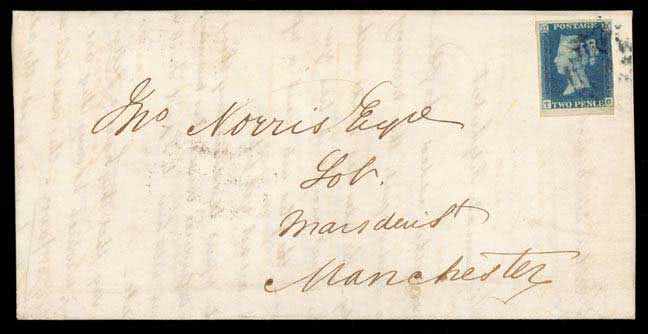 POSTAGE
T TWO PENCE G
Jno Norris Esqre
Sol.
Marsden St
Manchester